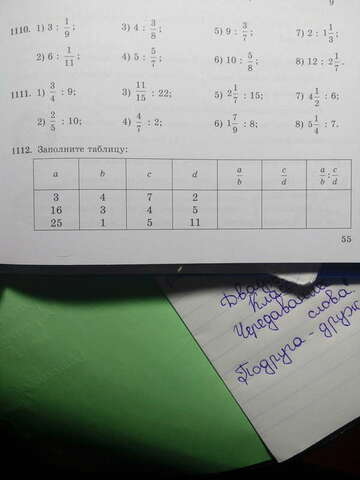 9
1110. 1) 3 : 1/9; 3) 4 : 3/8; 5) 9 : 3/7; 7) 2 : 1 1/3;
2) 6 : 1/11; 4) 5 : 5/7; 6) 10 : 5/8; 8) 12 : 2 1/7.
1111. 1) 3/4 : 9; 3) 11/15 : 22; 5) 2 1/7 : 15; 7) 4 1/2 : 6;
2) 2/5 : 10; 4) 4/7 : 2; 6) 1 7/9 : 8; 8) 5 1/4 : 7.
1112. Заполните таблицу:
a b c d a/b c/d a/b : c/d
3 4 7 2
16 3 4 5
25 1 5 11
55
слова
Подруга - друж